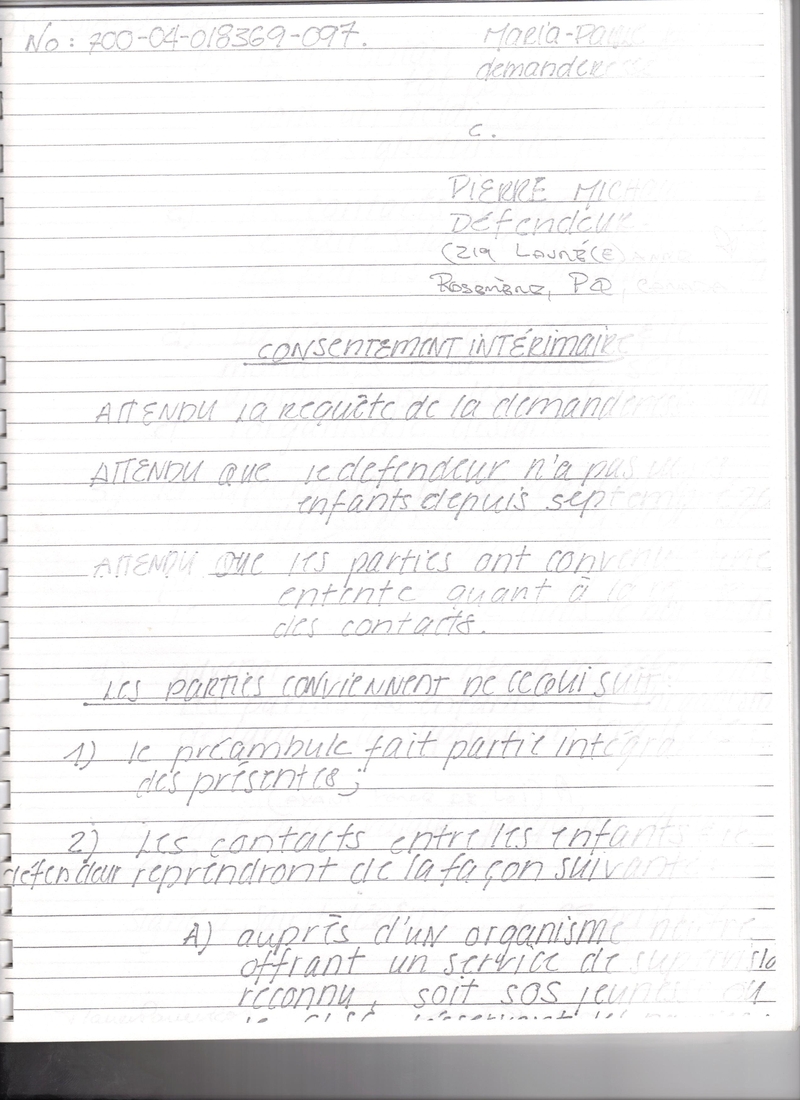 No: 700-04-018369-097.
Maria-
demanderesse
c.
PIERRE
Défendeur
(219 Lauré(e)
Rosemère, PQ, CANADA
CONSENTEMENT INTÉRIMAIRE
ATTENDU la requête de la demanderesse
ATTENDU que le défendeur n'a pas
enfants depuis
ATTENDU que les parties ont convenu
entente quant à la
des contacts.
Les PARTIES CONVIENNENT DE CE QUI SUIT
1) le préambule fait partie
des présentes;
2) Les contacts entre les enfants
défendeur reprendront de la façon suivante
A) auprès d'un organisme neutre
offrant un service de
reconnu, soit SOS jeunes ou